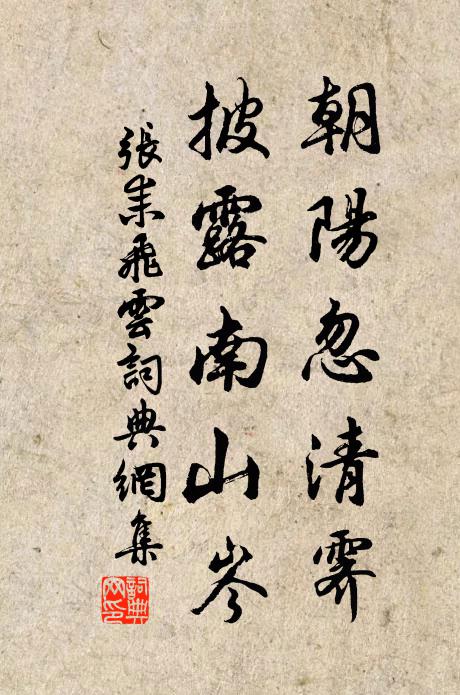 朝陽忽清霽
披露南山岑
張耒飛雲詞典網集
詞典
网印